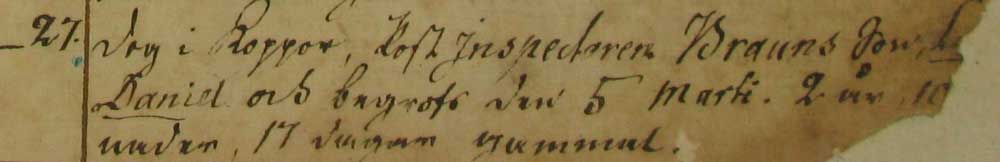 _27. dog i Koppor, Post Inspectoren Brauns Son,
Daniel och begrofs den 5 Marti. 2 år, 10
nader, 17 dagar gammal.